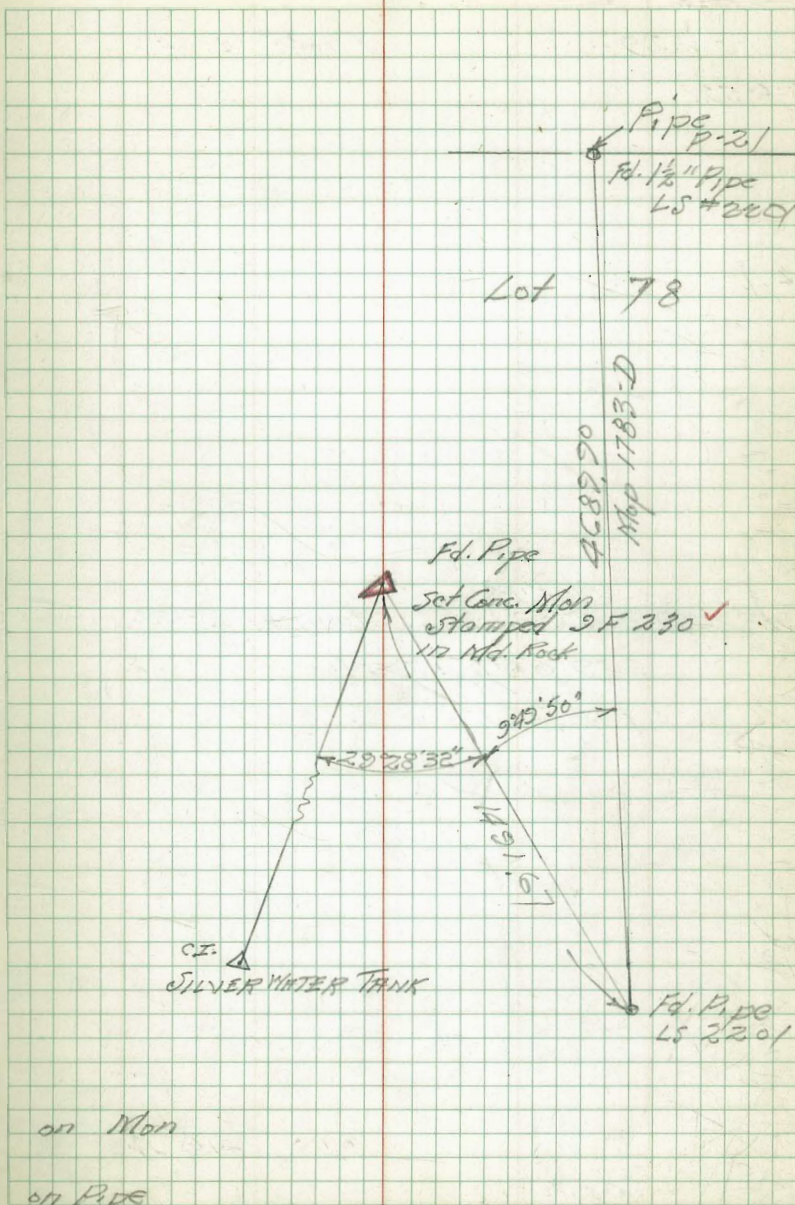 Pipe
P-21
Fd. 1½" Pipe
LS #2201
Lot 78
4689.90
Map 1783-D
Fd. Pipe
Set Conc. Mon
Stamped 9F 230 ✓
in Md. Rock
9°49'50"
29°28'32"
C.I.
SILVER WATER TANK
Fd. Pipe
LS 2201
on Mon
on Pipe